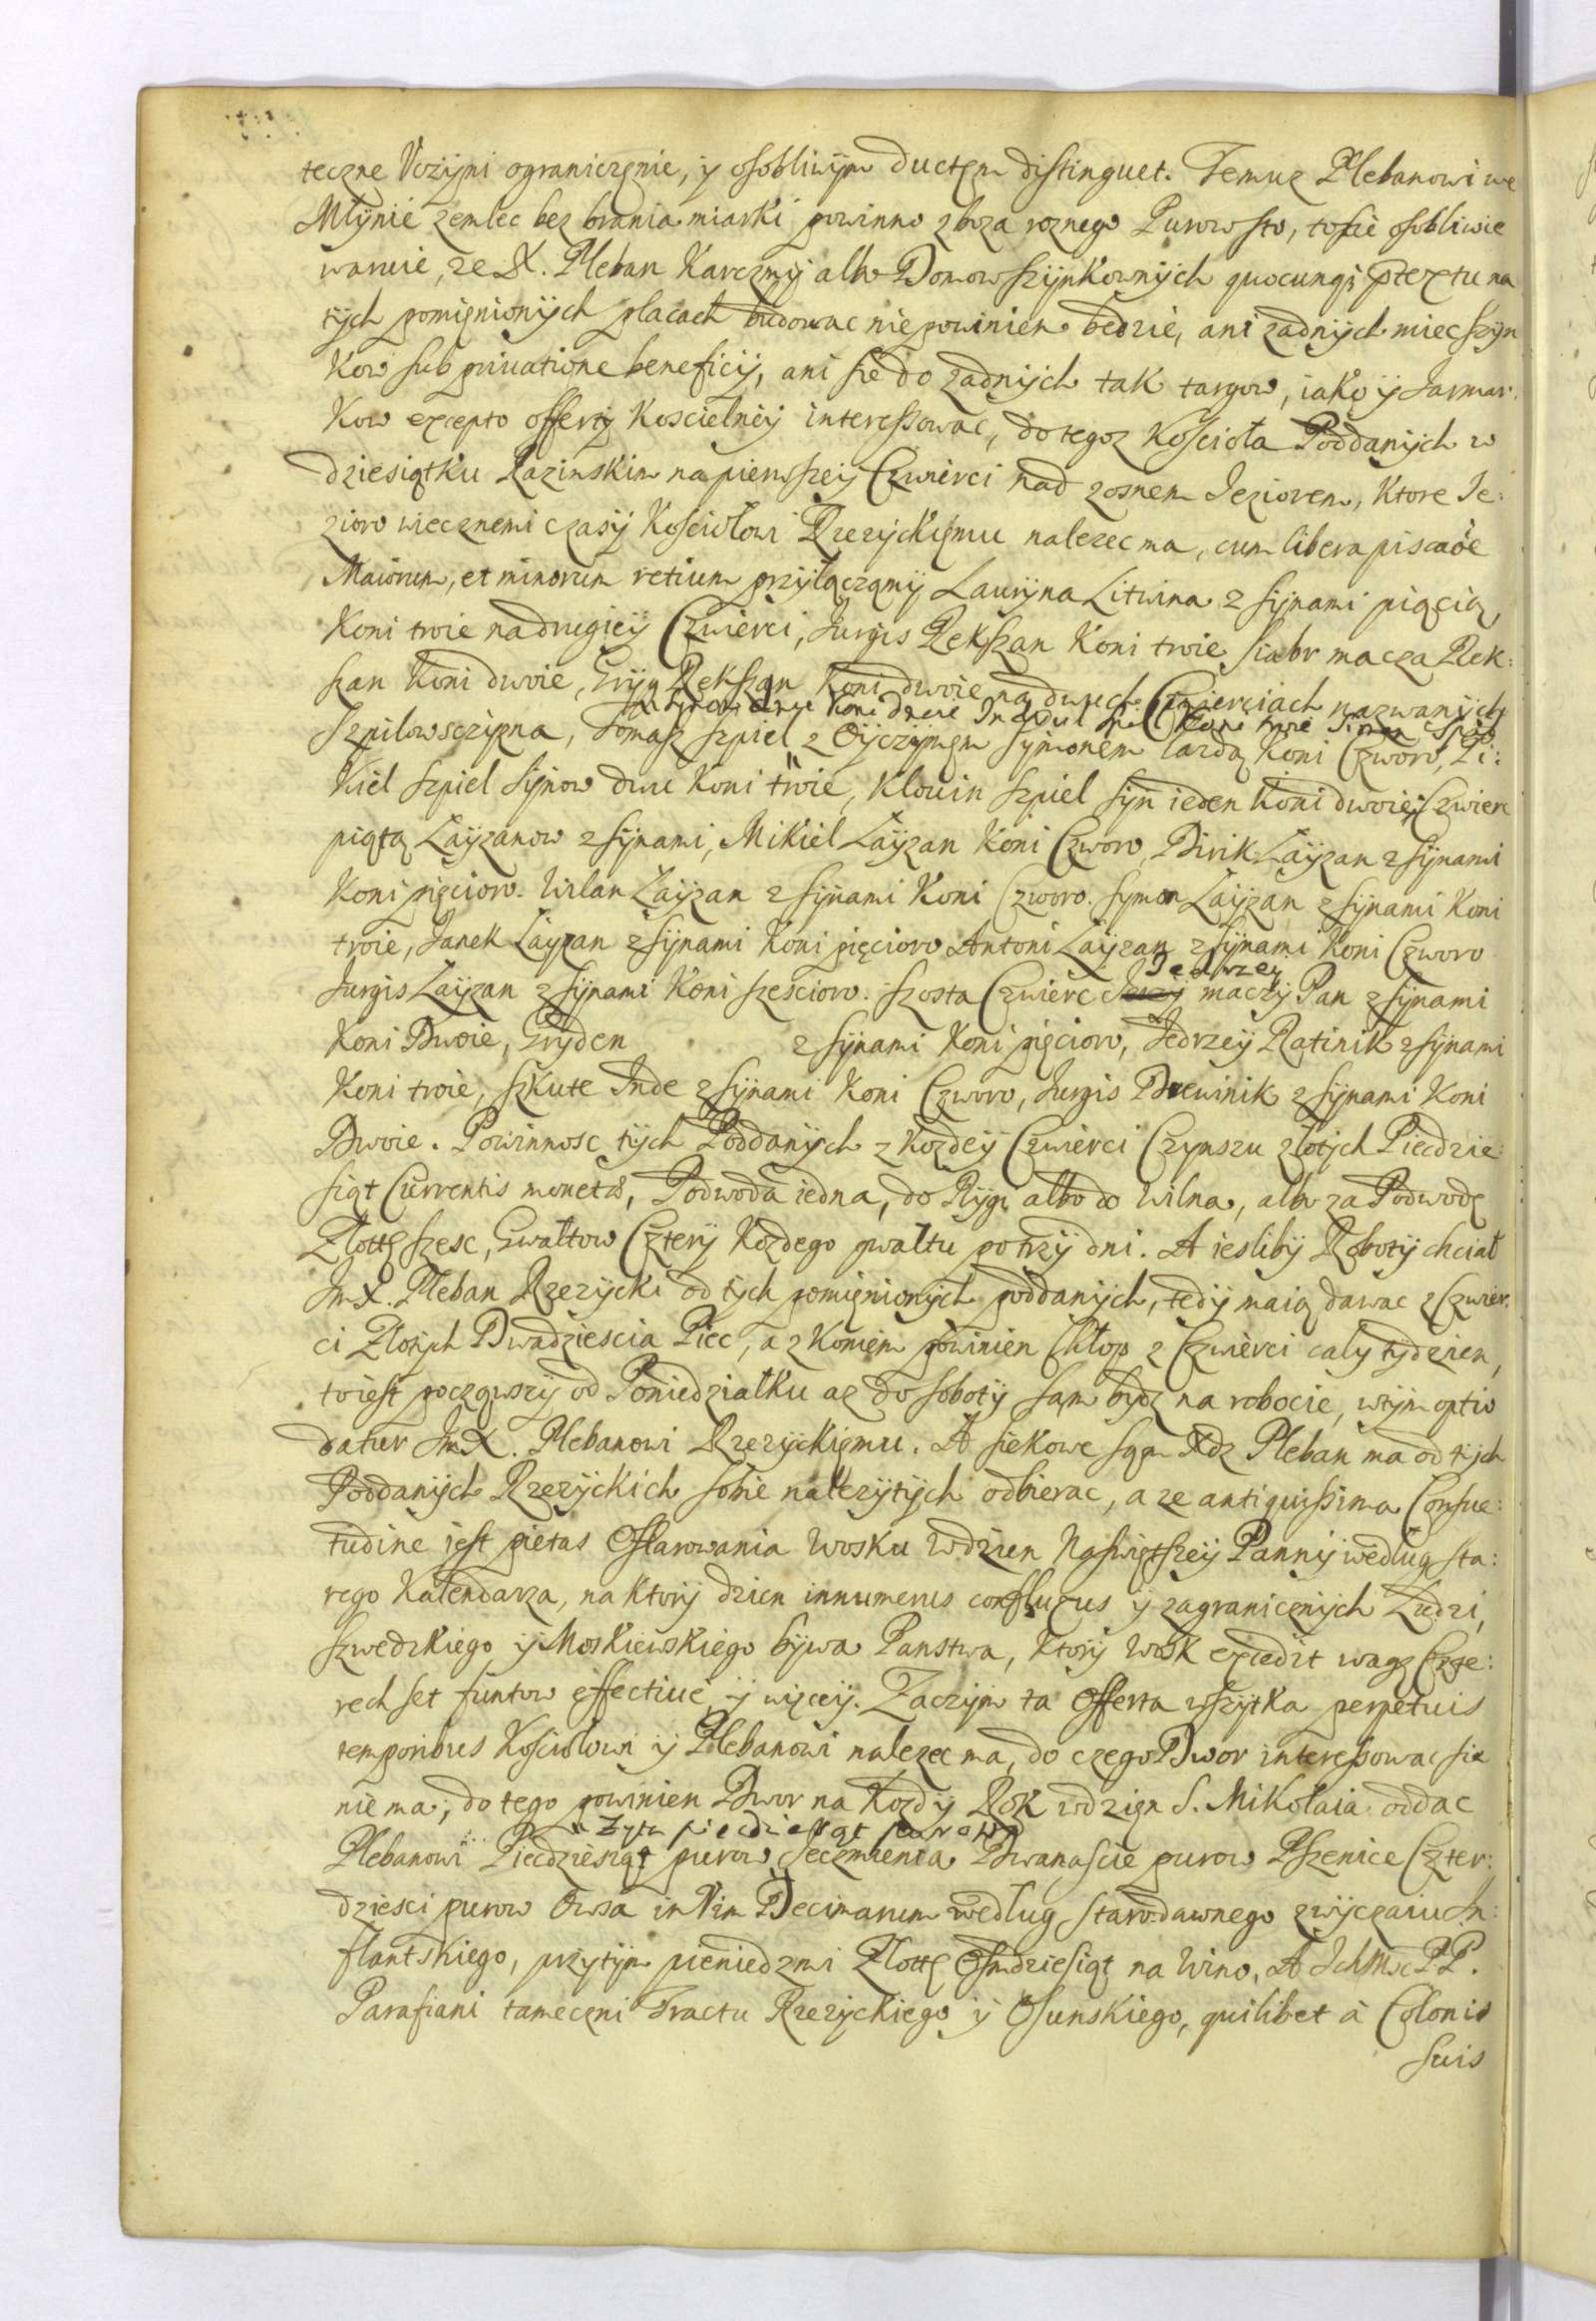 teczne Vczyni ograniczęnie, y osobliwym ductęm distinguet. Temuz Plebanowi we
Młynie zemlec bez brania miarki powinno zboza roznego Purow sto, to sie osobliwie
waruie, ze X. Pleban Karczmy albo Domow szynkownych quocunqȝ ptextu na
tych pomięnionych placach budowac nie powinien będzie, ani zadnych miec szyn
kow sub priuatione beneficij, ani sie do zadnych tak targow, iako y Jarmar:
kow excepto offerty Koscielney interessowac, do tegoz Koscioła Poddanych w
dziesiątku Razinskim na pierwszey Czwierci nad zosnem Jeziorem, ktore Je:
zioro wiecznemi czasy Kosciołowi Rzezyckięmu nalezec ma, cum libera piscaõe
Maiorum, et minorum retium przyłączamy Lauryna Litwina z synami pięcią
Koni troie na drugiey Czwierci, Jurgis Rekszan Koni troie siabr macza Rek:
szan Koni dwoie, Gryn Rekszan Koni dwoie na dwuch Czwierciach nazwanych
Szpilowsczizna, Tomasz szpiel z Oyczymęm symonem lardą Koni Czworo, Pi:
kiel szpiel synow dwu Koni troie, Klowin szpiel syn ieden Koni dwoie, Czwierc
piątą Layzanow z synami, Mikiel Layzan Koni Czworo, Birik Layzan z synami
Koni pięcioro. Urlan Layzan z synami Koni Czworo. symon Layzan z synami Koni
troie, Janek Layzan z synami Koni pięcioro Antoni Layzan z synami Koni Czworo
Jędrzey
Jurgis Layzan z synami Koni szescioro. szosta Czwierc maczy Pan z synami
Koni Dwoie, Gryden z synami Koni pięcioro, Jędrzey Ratinik z synami
Koni troie, szkute Inde z synami Koni Czworo, Jurgis Drewinik z synami Koni
Dwoie. Powinnosc tych Poddanych z Kozdey Czwierci Czynszu złotych Piecdzie:
siąt Currentis monetæ, Podwoda iedna, do Rygi albo do Wilna, albo za Podwodę
Złottę szesc, Gwałtow Cztery Kozdego gwałtu po trzy dni. A iesliby Roboty chciał
Jm X. Pleban Rzezycki od tych pomięnionych poddanych, tedy maią dawac z Czwier:
ci Złotych Dwadziescia Piec, a z Koniem powinien Chłop z Czwierci cały tydzien,
to iest począwszy od Poniedziałku az do soboty sam bydz na robocie, w tym optio
datur Jm X. Plebanowi Rzezyckięmu. A siekowe sąm Xdz Pleban ma od tych
Poddanych Rzezyckich sobie nalezytych odbierac, a ze antiquissima Consue:
tudine jest pietas Ofiarowania Wosku w dzien Naswiętszey Panny według sta:
rego Kalendarza, na ktory dzien innumerus confluxus y zagranicznych Ludzi,
szwedzkiego y Moskiewskiego bywa Panstwa, ktory wosk excedit wagę Czte:
rech set funtow effectiue y więcey. Zaczym ta Offerta wszytka perpetuis
temporibus Kosciołowi y Plebanowi nalezec ma, do czego Dwor interessowac sie
nie ma, do tego powinien Dwor na Kozdy Rok w dzięn S. Mikołaia oddac
Zyta piecdziesiąt purow
Plebanowi Piecdziesiąt purow Jeczmienia Dwanascie purow Pszenice Czter:
dziesci purow Owsa in Vim Decimarum według starodawnego zwyczaiu In:
flantskiego, przytym pieniedzmi Złottę Osmdziesiąt na Wino, A Ichmsc PP.
Parafiani tameczni Tractu Rzezyckiego y Osunskiego, quilibet à Colonis
suis